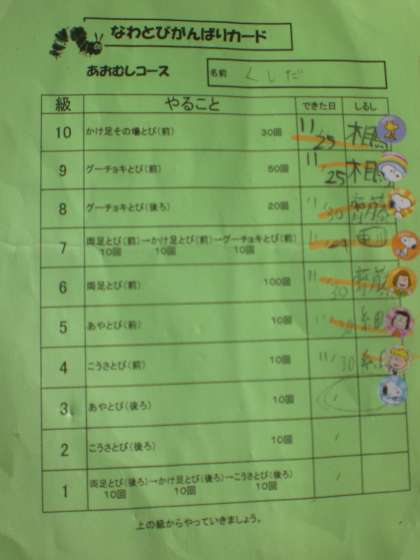 なわとびがんばりカード
あおむしコース
名前 くしだ
級 やること できた日 しるし
10 かけ足その場とび(前) 30回 11/25 相馬
9 グーチョキとび(前) 50回 11/25 相馬
8 グーチョキとび(後ろ) 20回 11/30 齋藤
7 両足とび(前)→かけ足とび(前)→グーチョキとび(前)
10回 10回 10回
6 両足とび(前) 100回 11/30 齋藤
5 あやとび(前) 10回
4 こうさとび(前) 10回 11/30
3 あやとび(後ろ) 10回
2 こうさとび(後ろ) 10回
1 両足とび(後ろ)→かけ足とび(後ろ)→こうさとび(後ろ)
10回 10回 10回
上の級からやっていきましょう。